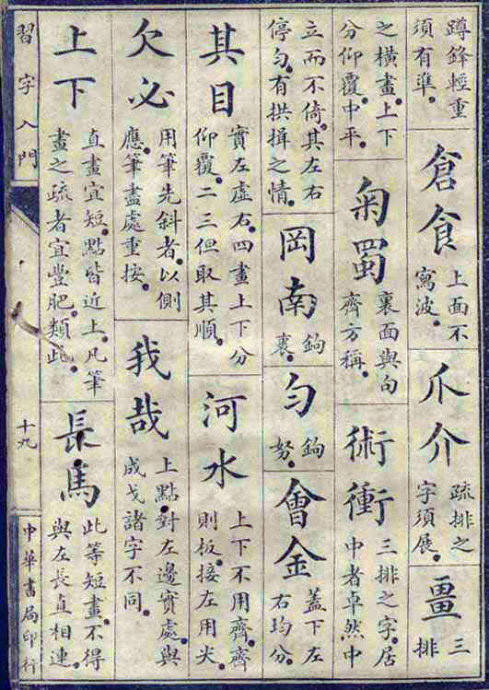 蹲鋒輕重
須有準。
倉食
上面不
寫波。
爪介
疏排之
字須展。
畺
三
排
之橫畫。上下
分仰覆。中平。
菊蜀
裏面與勹
齊方稱。
術衝
三排之字。居
中者卓然中
立而不倚。其左右
停勻。有拱揖之情。
岡南
鉤
裏。
勻
鉤
努。
會金
蓋下左
右均分。
其目
實左虛右。四畫上下分
仰覆。二三但取其順。
河水
上下不用齊。齊
則板。接左用尖。
欠必
用筆先斜者。以側
應。筆盡處重按。
我哉
上點。對左邊實處。與
成戈諸字不同。
上下
直畫宜短。點皆近上。凡筆
畫之疏者宜豐肥。類此。
長馬
此等短畫。不得
與左長直相連。
習字入門
十九
中華書局印行